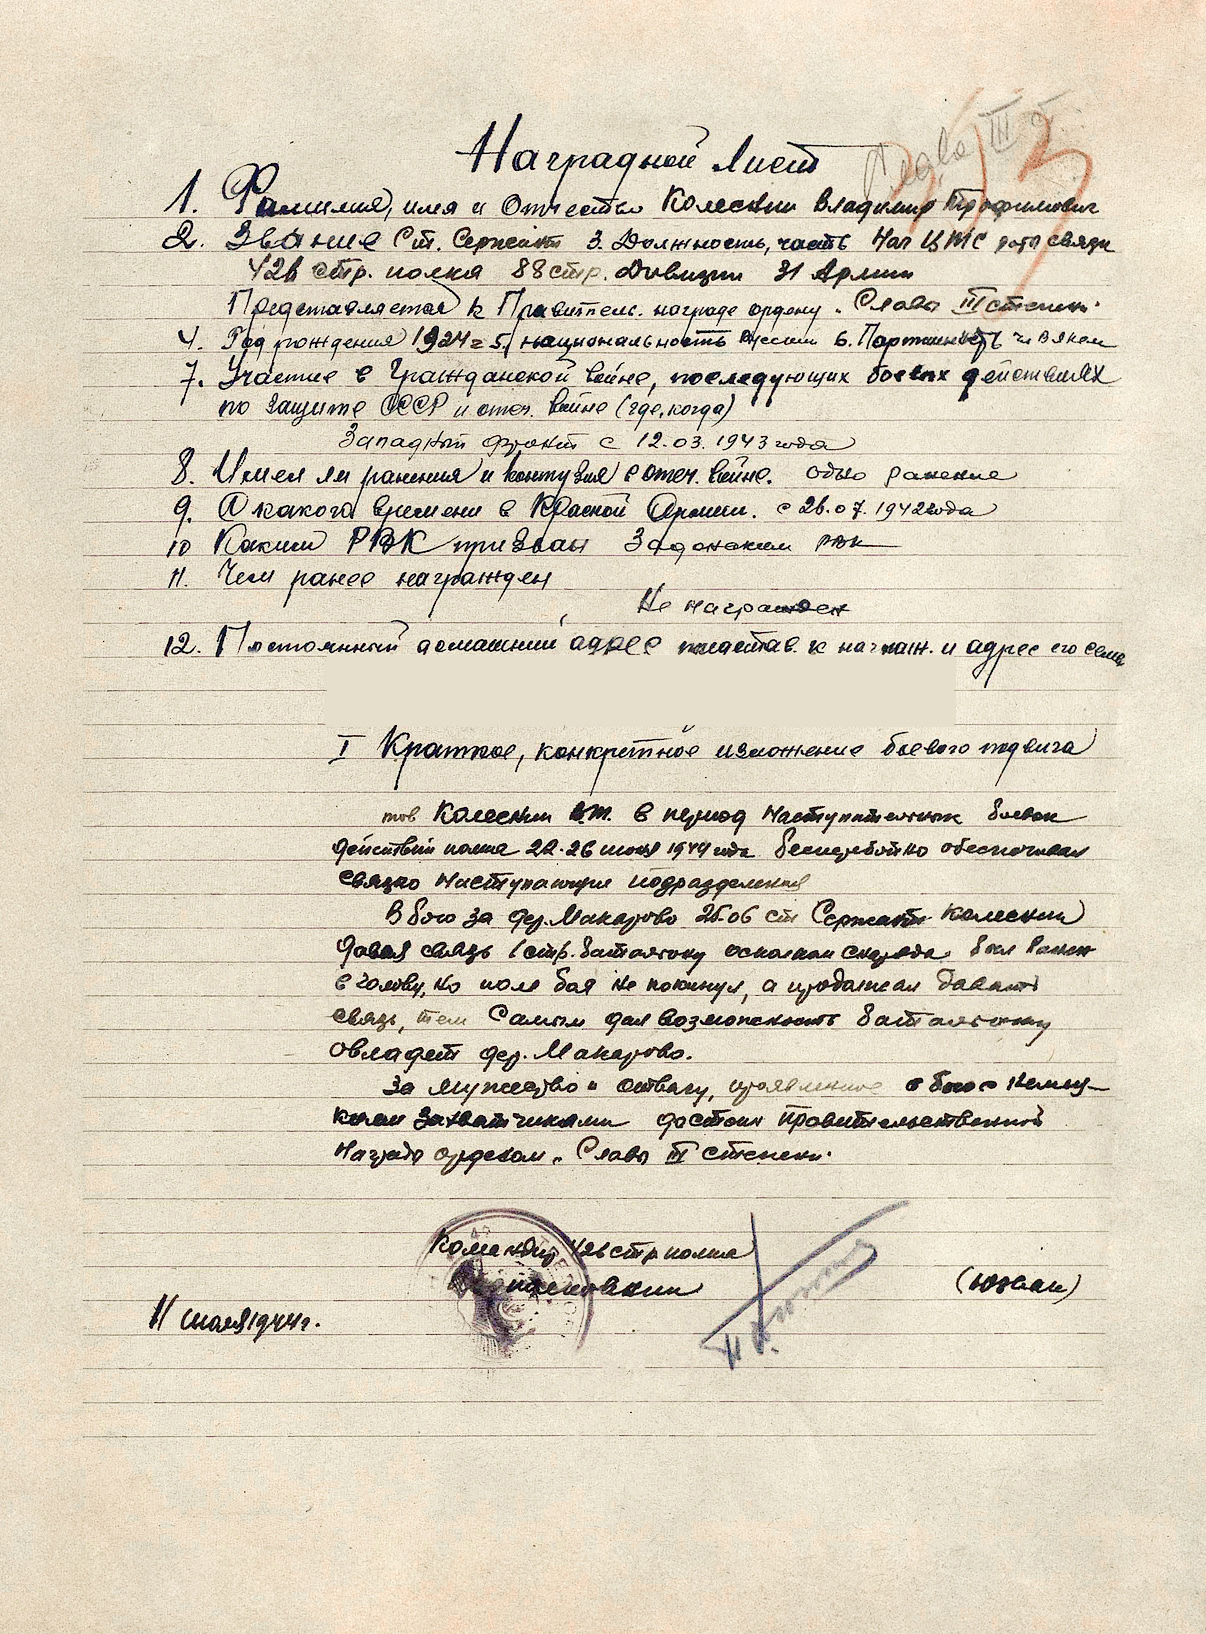 Слава III ст
Наградной лист
1. Фамилия, имя и Отчество Колескин Владимир Трофимович
2. Звание Ст. Сержант 3. Должность, часть Нач ЦТС роты связи
426 стр. полка 88 стр. Дивизии 31 Армии
Представляется к Правительс. награде ордену "Слава III степени"
4. Год рождения 1924 г 5. национальность русский 6. Партийность чл ВЛКСМ
7. Участие в Гражданской войне, последующих боевых действиях
по защите СССР и отеч. войне (где, когда)
Западный фронт с 12.03.1943 года
8. Имел ли ранения и контузия в отеч. войне. одно ранение
9. С какого времени в Красной Армии. с 26.07.1942 года
10 Каким РВК призван Задонским РВК
11. Чем ранее награжден
Не награжден
12. Постоянный домашний адрес представ. к награж. и адрес его семьи
I Краткое, конкретное изложение боевого подвига
тов Колескин В.Т. в период наступательных боевых
действий полка 22-26 июня 1944 года бесперебойно обеспечивал
связью наступающие подразделения
В бою за дер. Макарово 25.06 ст Сержант Колескин
давая связь 1 стр. батальону осколком снаряда был ранен
в голову, но поле боя не покинул, а продолжал давать
связь, тем самым дал возможность батальону
овладеть дер. Макарово.
За мужество и отвагу, проявленные в бою с немец-
кими захватчиками достоин правительственной
награды орденом "Слава III степени"
Командир 426 стр полка
Подполковник (Юзвак)
11 июля 1944 г.